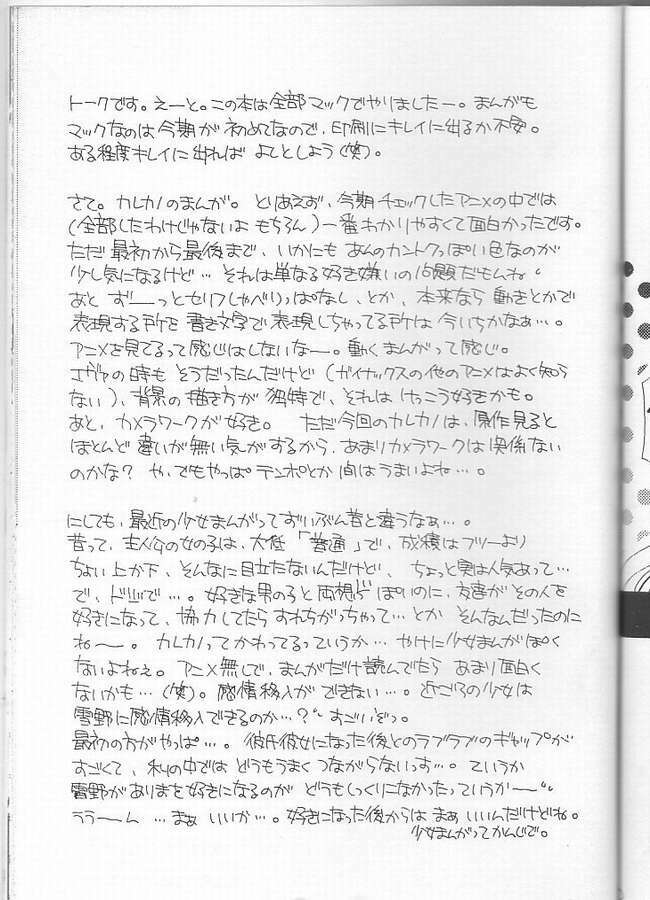 トークです。えーと。この本は全部マックでやりましたー。まんがも
マックなのは今期が初めてなので、印刷にキレイに出るか不安。
ある程度キレイに出れば よしとしよう(笑)。
さて。カレカノのまんが。とりあえず、今期チェックしたアニメの中では
(全部したわけじゃないよ もちろん)一番わかりやすくて面白かったです。
ただ最初から最後まで、いかにも あんのカントクっぽい色なのが
少し気になるけど… それは単なる好き嫌いの問題だもんね。
あと ずーーっとセリフしゃべりっぱなし、とか、本来なら 動きとかで
表現する所を 書き文字で表現しちゃってる所は 今いちかなぁ…。
アニメを見てるって感じはしないなー。動くまんがって感じ。
エヴァの時も そうだったんだけど(ガイナックスの他のアニメはよく知ら
ない)、背景の描き方が 独特で、それは けっこう好きかも。
あと、カメラワークが好き。 ただ今回のカレカノは、原作見ると
ほとんど 違いが無い気がするから、あまりカメラワークは関係ない
のかな? や、でもやっぱ テンポとか 間はうまいよね…。
にしても、最近の少女まんがって ずいぶん昔と違うなぁ…。
昔って、主人公の女の子は、大低「普通」で、成績はフツーより
ちょい上か下、そんなに目立たないんだけど、 ちょっと実は人気あって…
で、ドジで…。好きな男のこと両想いっぽいのに、友達がその人を
好きになって、協力してたら すれちがっちゃって…とか そんなんだったのに
ねー。 カレカノってかわってるっていうか… やけに少女まんがぽく
ないよねぇ。アニメ無しで、まんがだけ読んでたら あまり面白く
ないかも…(笑)。感情移入が できない…。近ごろの少女は
雪野に感情移入できるのか…? すごいぞっ。
最初の方がやっぱ…。彼氏彼女になった後とのラブラブのギャップが
すごくて、私の中では どうもうまく つながらないっす…。ていうか
雪野がありまを好きになるのが どうもしっくりこなかったっていうかー
ううーん …まぁ いいか…。好きになった後からは まぁ いいんだけどね。
少女まんがってかんじで。